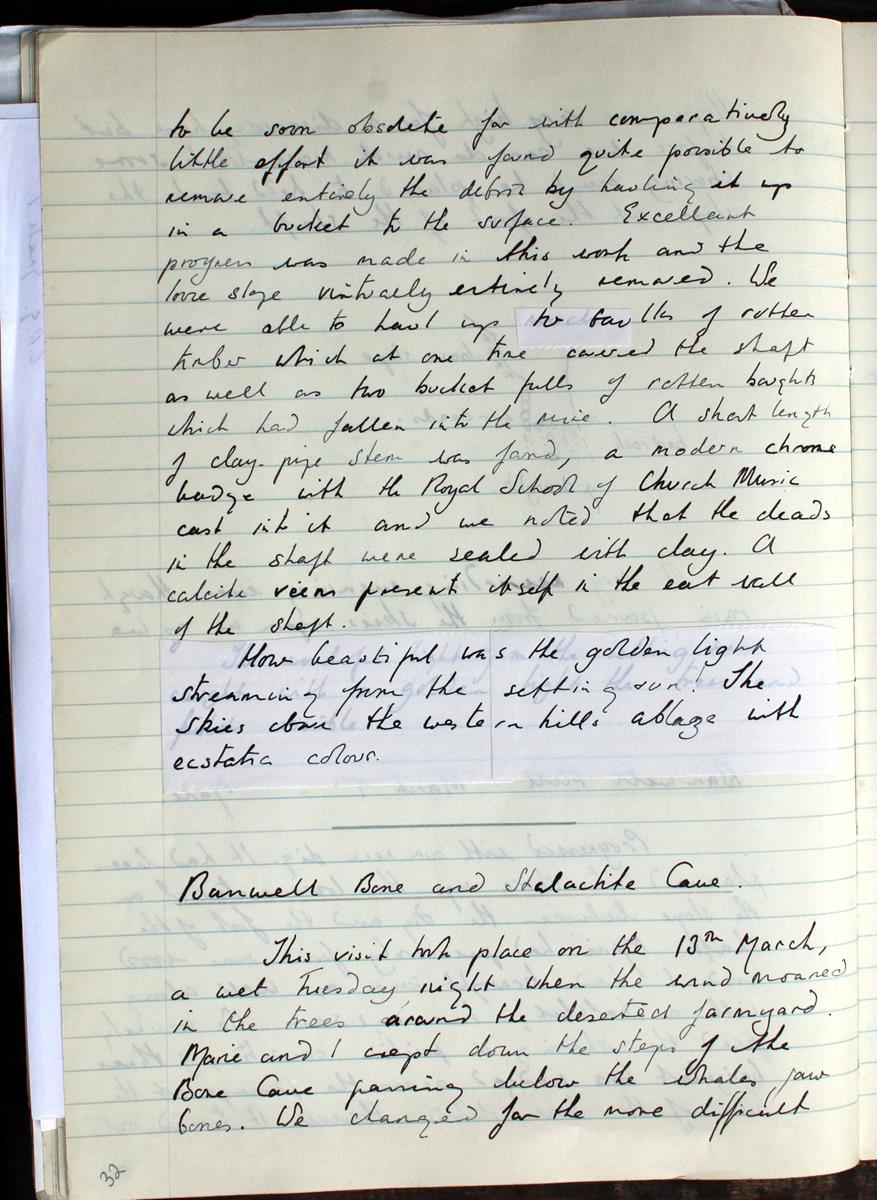 to be soon obsolete for with comparatively
little effort it was found quite possible to
remove entirely the debris by hauling it up
in a bucket to the surface. Excellent
progress was made in this work and the
loose stage virtually entirely removed. We
were able to haul up of rotten
timber which at one time covered the shaft
as well as two bucket fulls of rotten boughs
which had fallen into the mine. A short length
of clay-pipe stem was found, a modern chrome
badge with the Royal School of Church Music
cast into it and we noted that the deads
in the shaft were sealed with clay. A
calcite veins present itself in the east wall
of the shaft.
How beautiful was the golden light
streaming from the setting sun! The
skies above the western hills ablaze with
ecstatic colour.
Banwell Bone and Stalactite Cave.
This visit took place on the 13th March,
a wet Tuesday night when the wind moaned
in the trees around the deserted farmyard.
Marie and I crept down the steps of the
Bone Cave passing below the whales jaw
bones. We changed for the more difficult
32